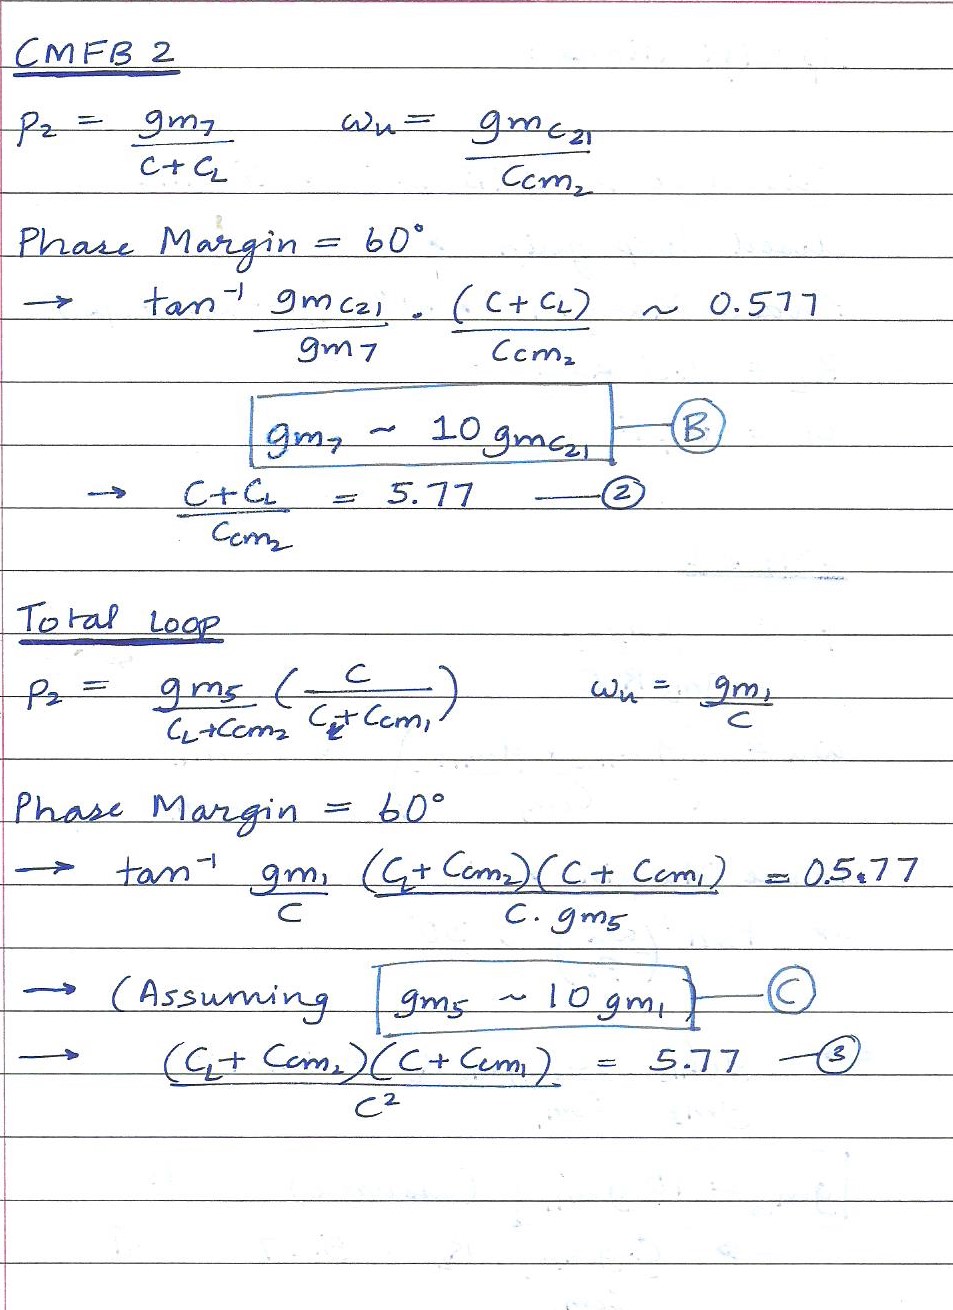 CMFB 2
p₂ = gm₇/(C + C_L)    ωu = gmc₂₁/Ccm₂
Phase Margin = 60°
→ tan⁻¹ gmc₂₁/gm₇ . (C + C_L)/Ccm₂ ~ 0.577
gm₇ ~ 10 gmc₂₁ — B
→ (C + C_L)/Ccm₂ = 5.77 — 2
Total Loop
p₂ = gm₅/(C_L + Ccm₂) (C/(C + Ccm₁))    ωu = gm₁/C
Phase Margin = 60°
→ tan⁻¹ gm₁/C (C_L + Ccm₂)(C + Ccm₁)/(C . gm₅) = 0.5.77
→ (Assuming gm₅ ~ 10 gm₁ — C
→ (C_L + Ccm₂)(C + Ccm₁)/C² = 5.77 — 3